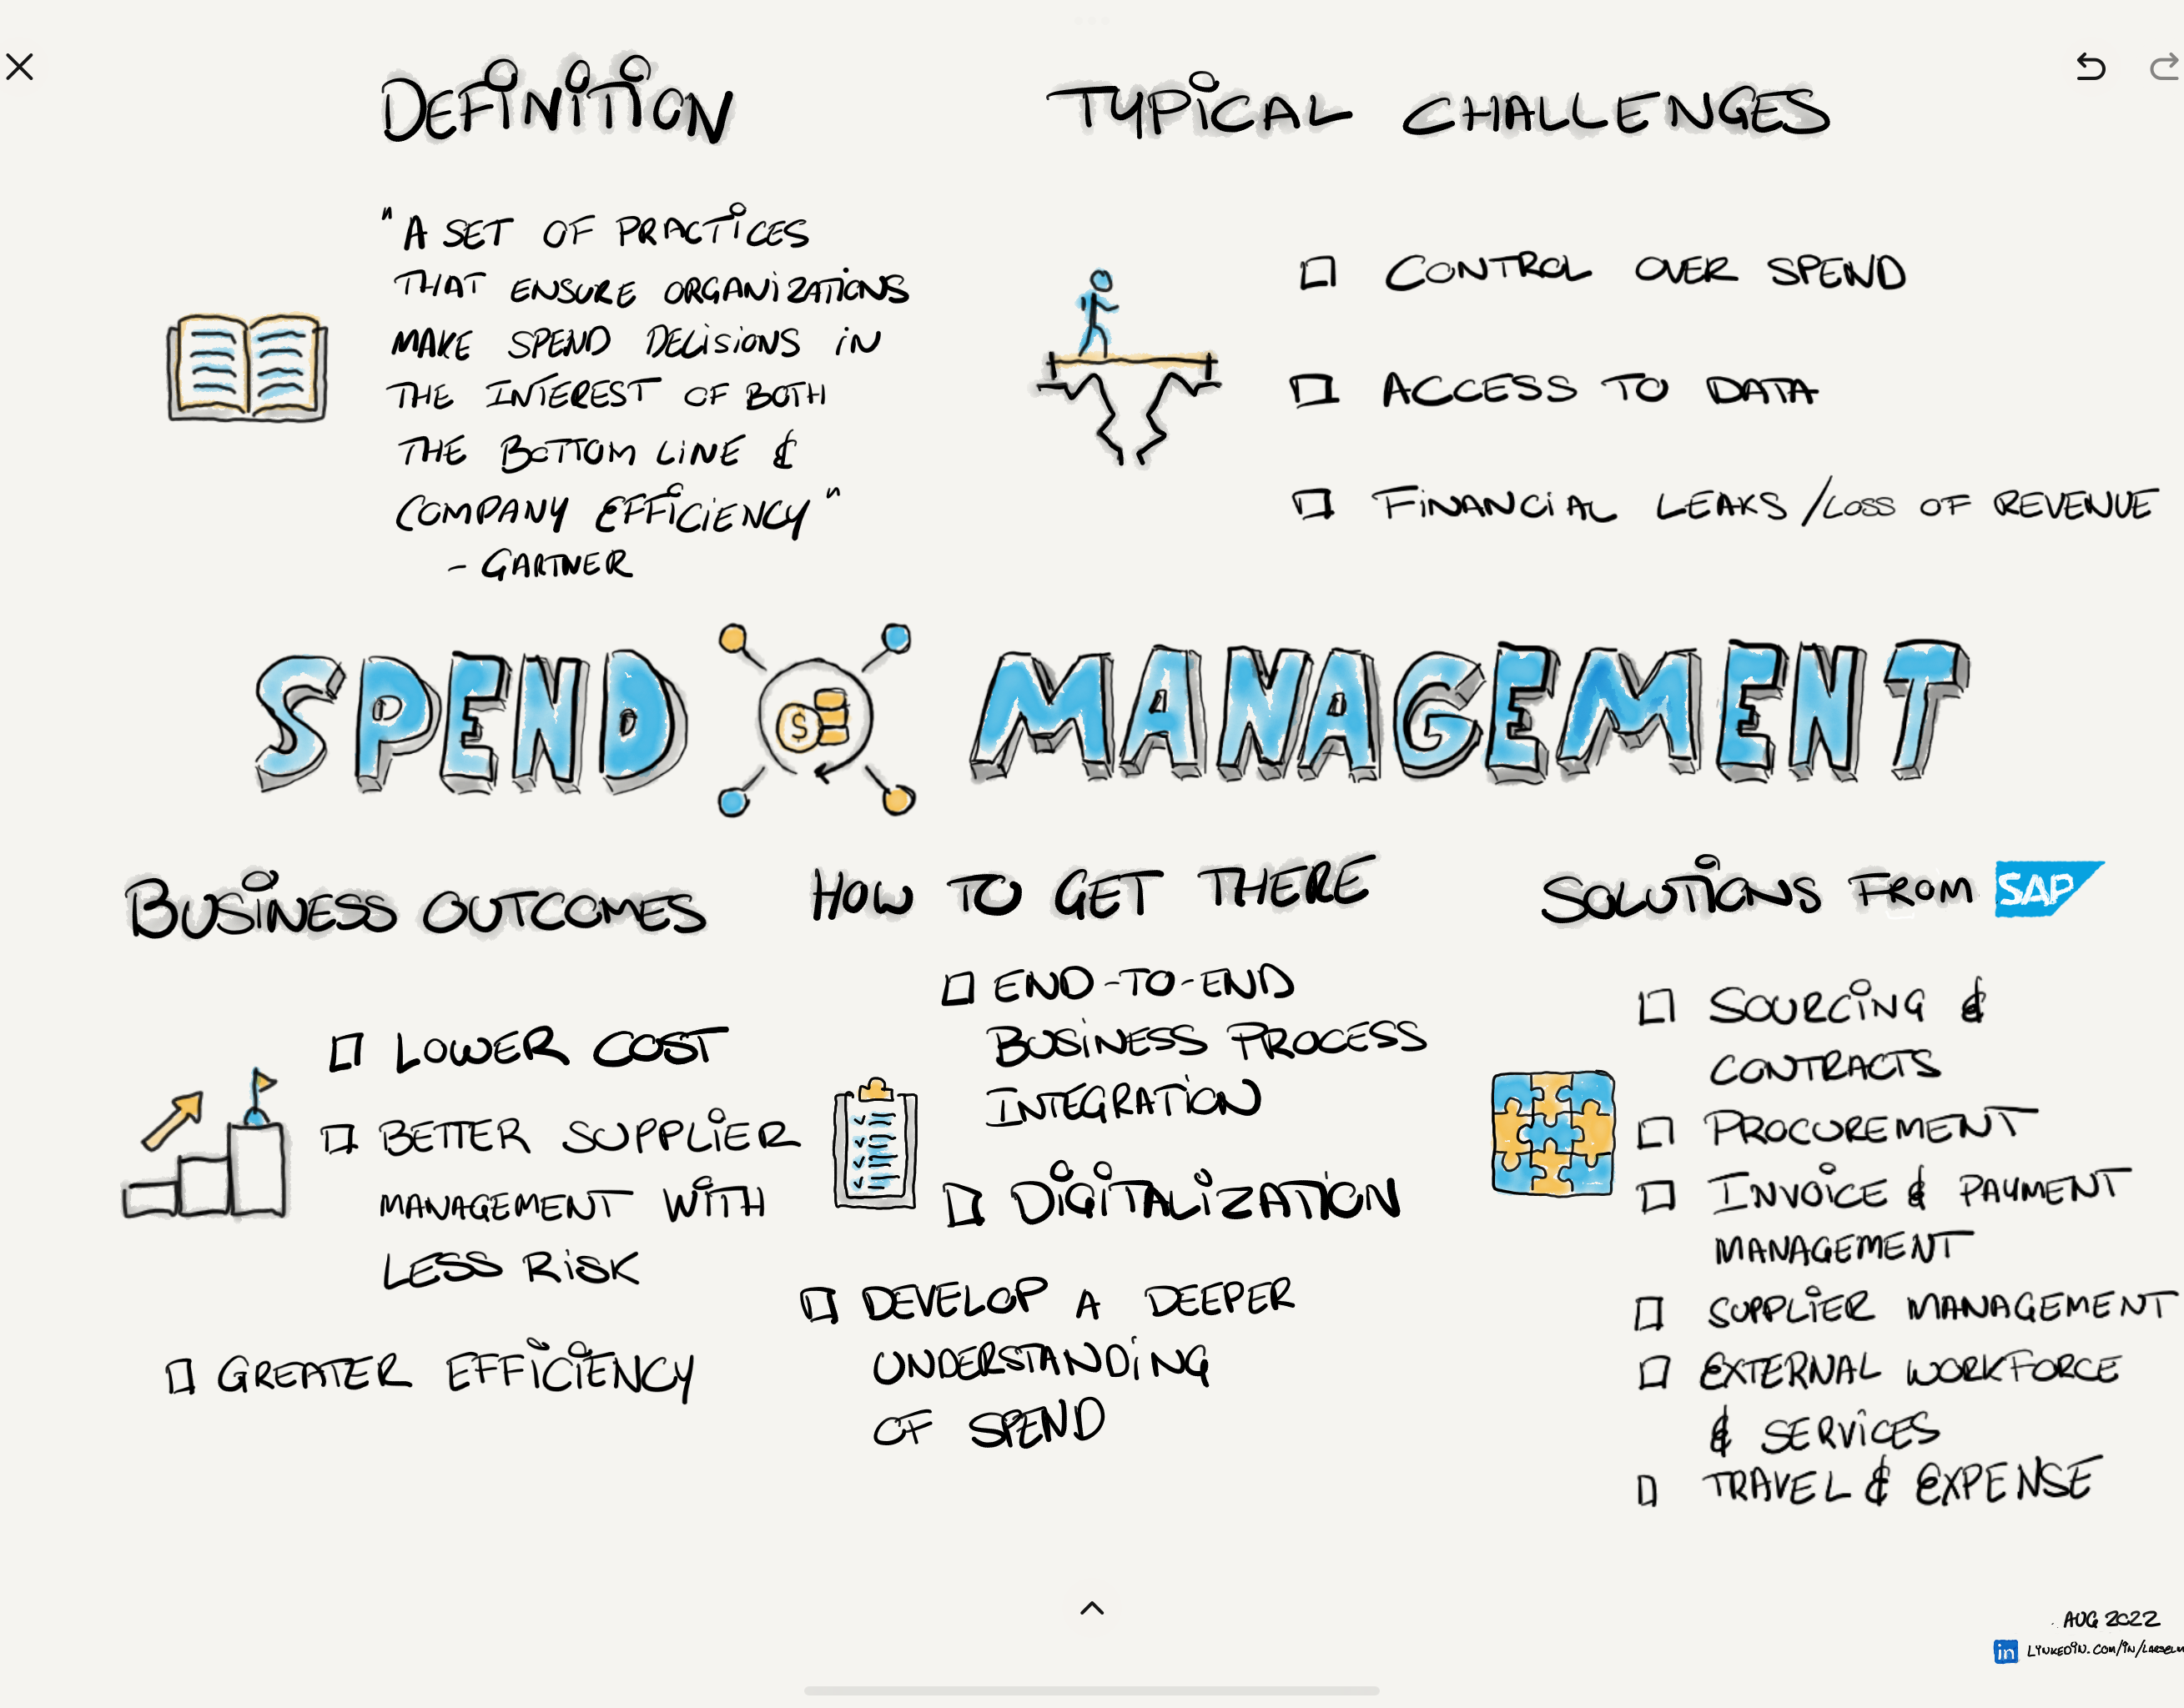 DEFINITION
"A SET OF PRACTICES
THAT ENSURE ORGANIZATIONS
MAKE SPEND DECISIONS IN
THE INTEREST OF BOTH
THE BOTTOM LINE &
COMPANY EFFICIENCY"
- GARTNER
TYPICAL CHALLENGES
CONTROL OVER SPEND
ACCESS TO DATA
FINANCIAL LEAKS / LOSS OF REVENUE
SPEND $ MANAGEMENT
BUSINESS OUTCOMES
LOWER COST
BETTER SUPPLIER
MANAGEMENT WITH
LESS RISK
GREATER EFFICIENCY
HOW TO GET THERE
END-TO-END
BUSINESS PROCESS
INTEGRATION
DIGITALIZATION
DEVELOP A DEEPER
UNDERSTANDING
OF SPEND
SOLUTIONS FROM SAP
SOURCING &
CONTRACTS
PROCUREMENT
INVOICE & PAYMENT
MANAGEMENT
SUPPLIER MANAGEMENT
EXTERNAL WORKFORCE
& SERVICES
TRAVEL & EXPENSE
AUG 2022
in LINKEDIN.COM/IN/